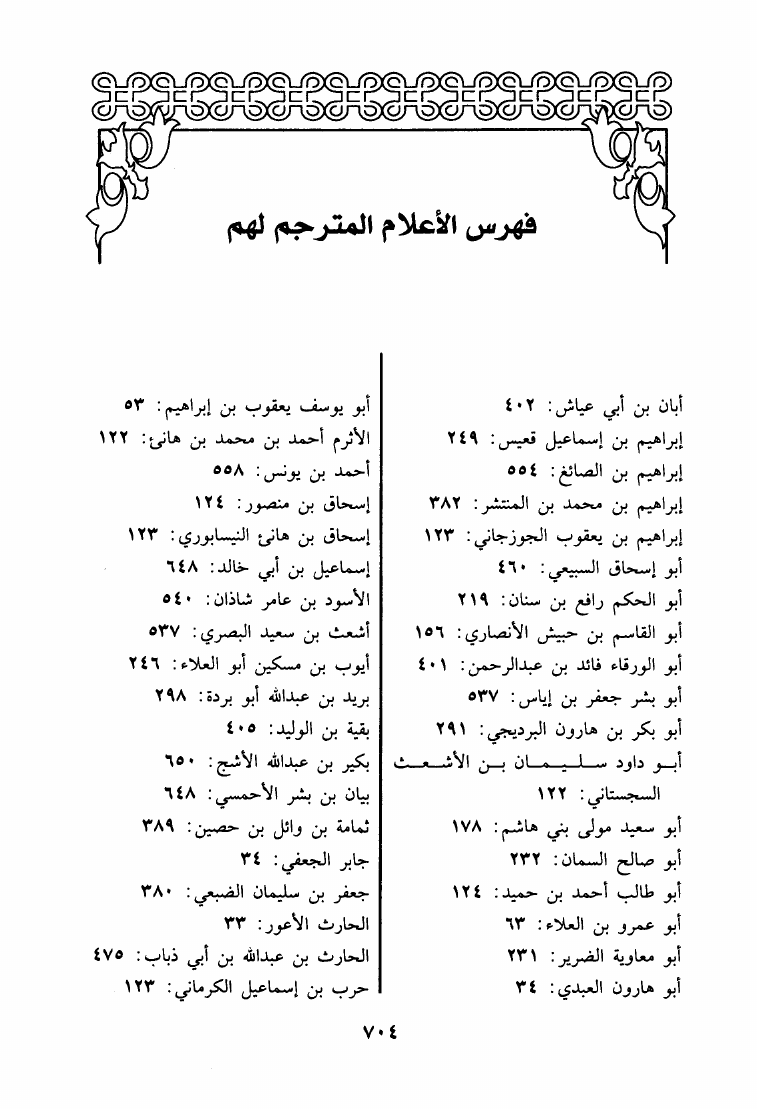 فهرس الأعلام المترجم لهم
أبان بن أبي عياش: ٤٠٢
إبراهيم بن إسماعيل قعيس: ٢٤٩
إبراهيم بن الصائغ: ٥٥٤
إبراهيم بن محمد بن المنتشر: ٣٨٢
إبراهيم بن يعقوب الجوزجاني: ١٢٣
أبو إسحاق السبيعي: ٤٦٠
أبو الحكم رافع بن سنان: ٢١٩
أبو القاسم بن حبيش الأنصاري: ١٥٦
أبو الورقاء فائد بن عبدالرحمن: ٤٠١
أبو بشر جعفر بن إياس: ٥٣٧
أبو بكر بن هارون البرديجي: ٢٩١
أبو داود سليمان بن الأشعث
السجستاني: ١٢٢
أبو سعيد مولى بني هاشم: ١٧٨
أبو صالح السمان: ٢٣٢
أبو طالب أحمد بن حميد: ١٢٤
أبو عمرو بن العلاء: ٦٣
أبو معاوية الضرير: ٢٣١
أبو هارون العبدي: ٣٤
أبو يوسف يعقوب بن إبراهيم: ٥٣
الأثرم أحمد بن محمد بن هانئ: ١٢٢
أحمد بن يونس: ٥٥٨
إسحاق بن منصور: ١٢٤
إسحاق بن هانئ النيسابوري: ١٢٣
إسماعيل بن أبي خالد: ٦٤٨
الأسود بن عامر شاذان: ٥٤٠
أشعث بن سعيد البصري: ٥٣٧
أيوب بن مسكين أبو العلاء: ٢٤٦
بريد بن عبدالله أبو بردة: ٢٩٨
بقية بن الوليد: ٤٠٥
بكير بن عبدالله الأشج: ٦٥٠
بيان بن بشر الأحمسي: ٦٤٨
ثمامة بن وائل بن حصين: ٣٨٩
جابر الجعفي: ٣٤
جعفر بن سليمان الضبعي: ٣٨٠
الحارث الأعور: ٣٣
الحارث بن عبدالله بن أبي ذباب: ٤٧٥
حرب بن إسماعيل الكرماني: ١٢٣
٧٠٤